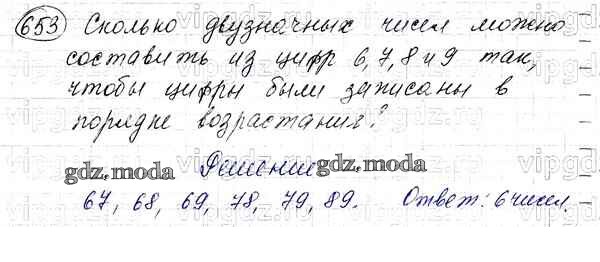 653 Сколько двузначных чисел можно
составить из цифр 6, 7, 8 и 9 так,
чтобы цифры были записаны в
порядке возрастания?
gdz.moda Решение gdz.moda
67, 68, 69, 78, 79, 89. Ответ: 6 чисел.